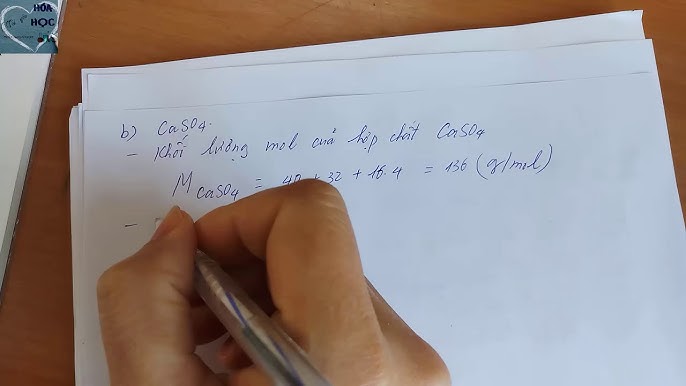 HÓA
HỌC
b) CaSO4.
- Khối lượng mol của hợp chất CaSO4
M CaSO4 = 40 + 32 + 16.4 = 136 (g/mol)
-